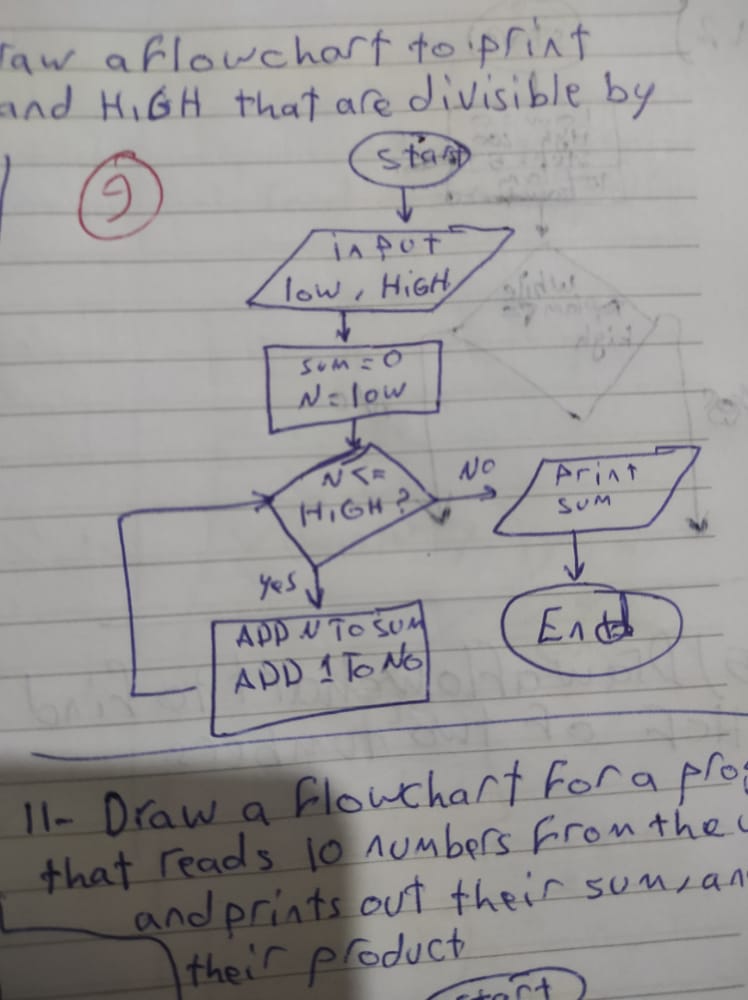 raw a flowchart to print
and HIGH that are divisible by
9
start
input
low, HIGH
sum = 0
N = low
N <=
HIGH?
NO
print
sum
yes
End
ADD N TO SUM
ADD 1 TO NO
11- Draw a flowchart for a prog
that reads 10 numbers from the
and prints out their sum, an
their product
start